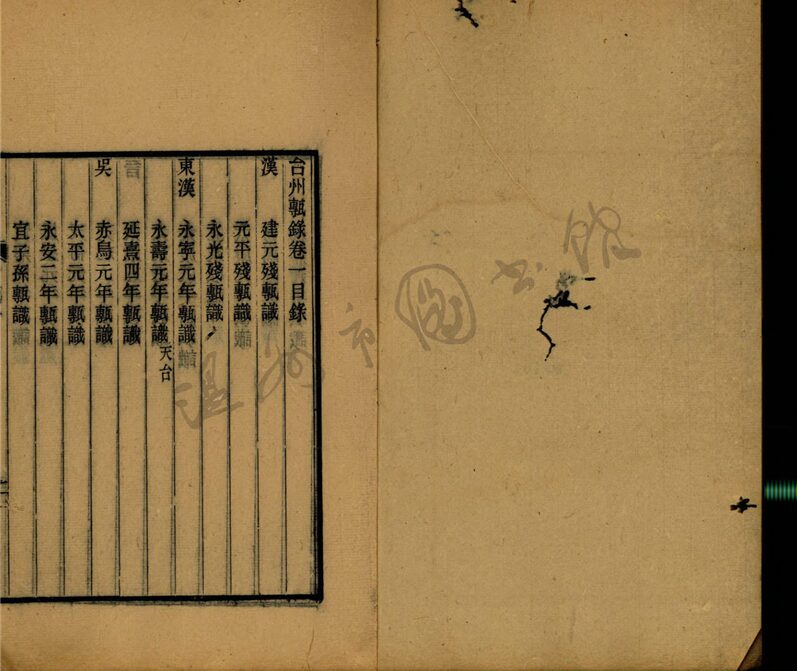 台州甎錄卷一目錄
漢
建元殘甎識
元平殘甎識
永光殘甎識
東漢
永寧元年甎識
永壽元年甎識天台
延熹四年甎識
吳
赤烏元年甎識
太平元年甎識
永安二年甎識
宜子孫甎識
溫州市圖書館